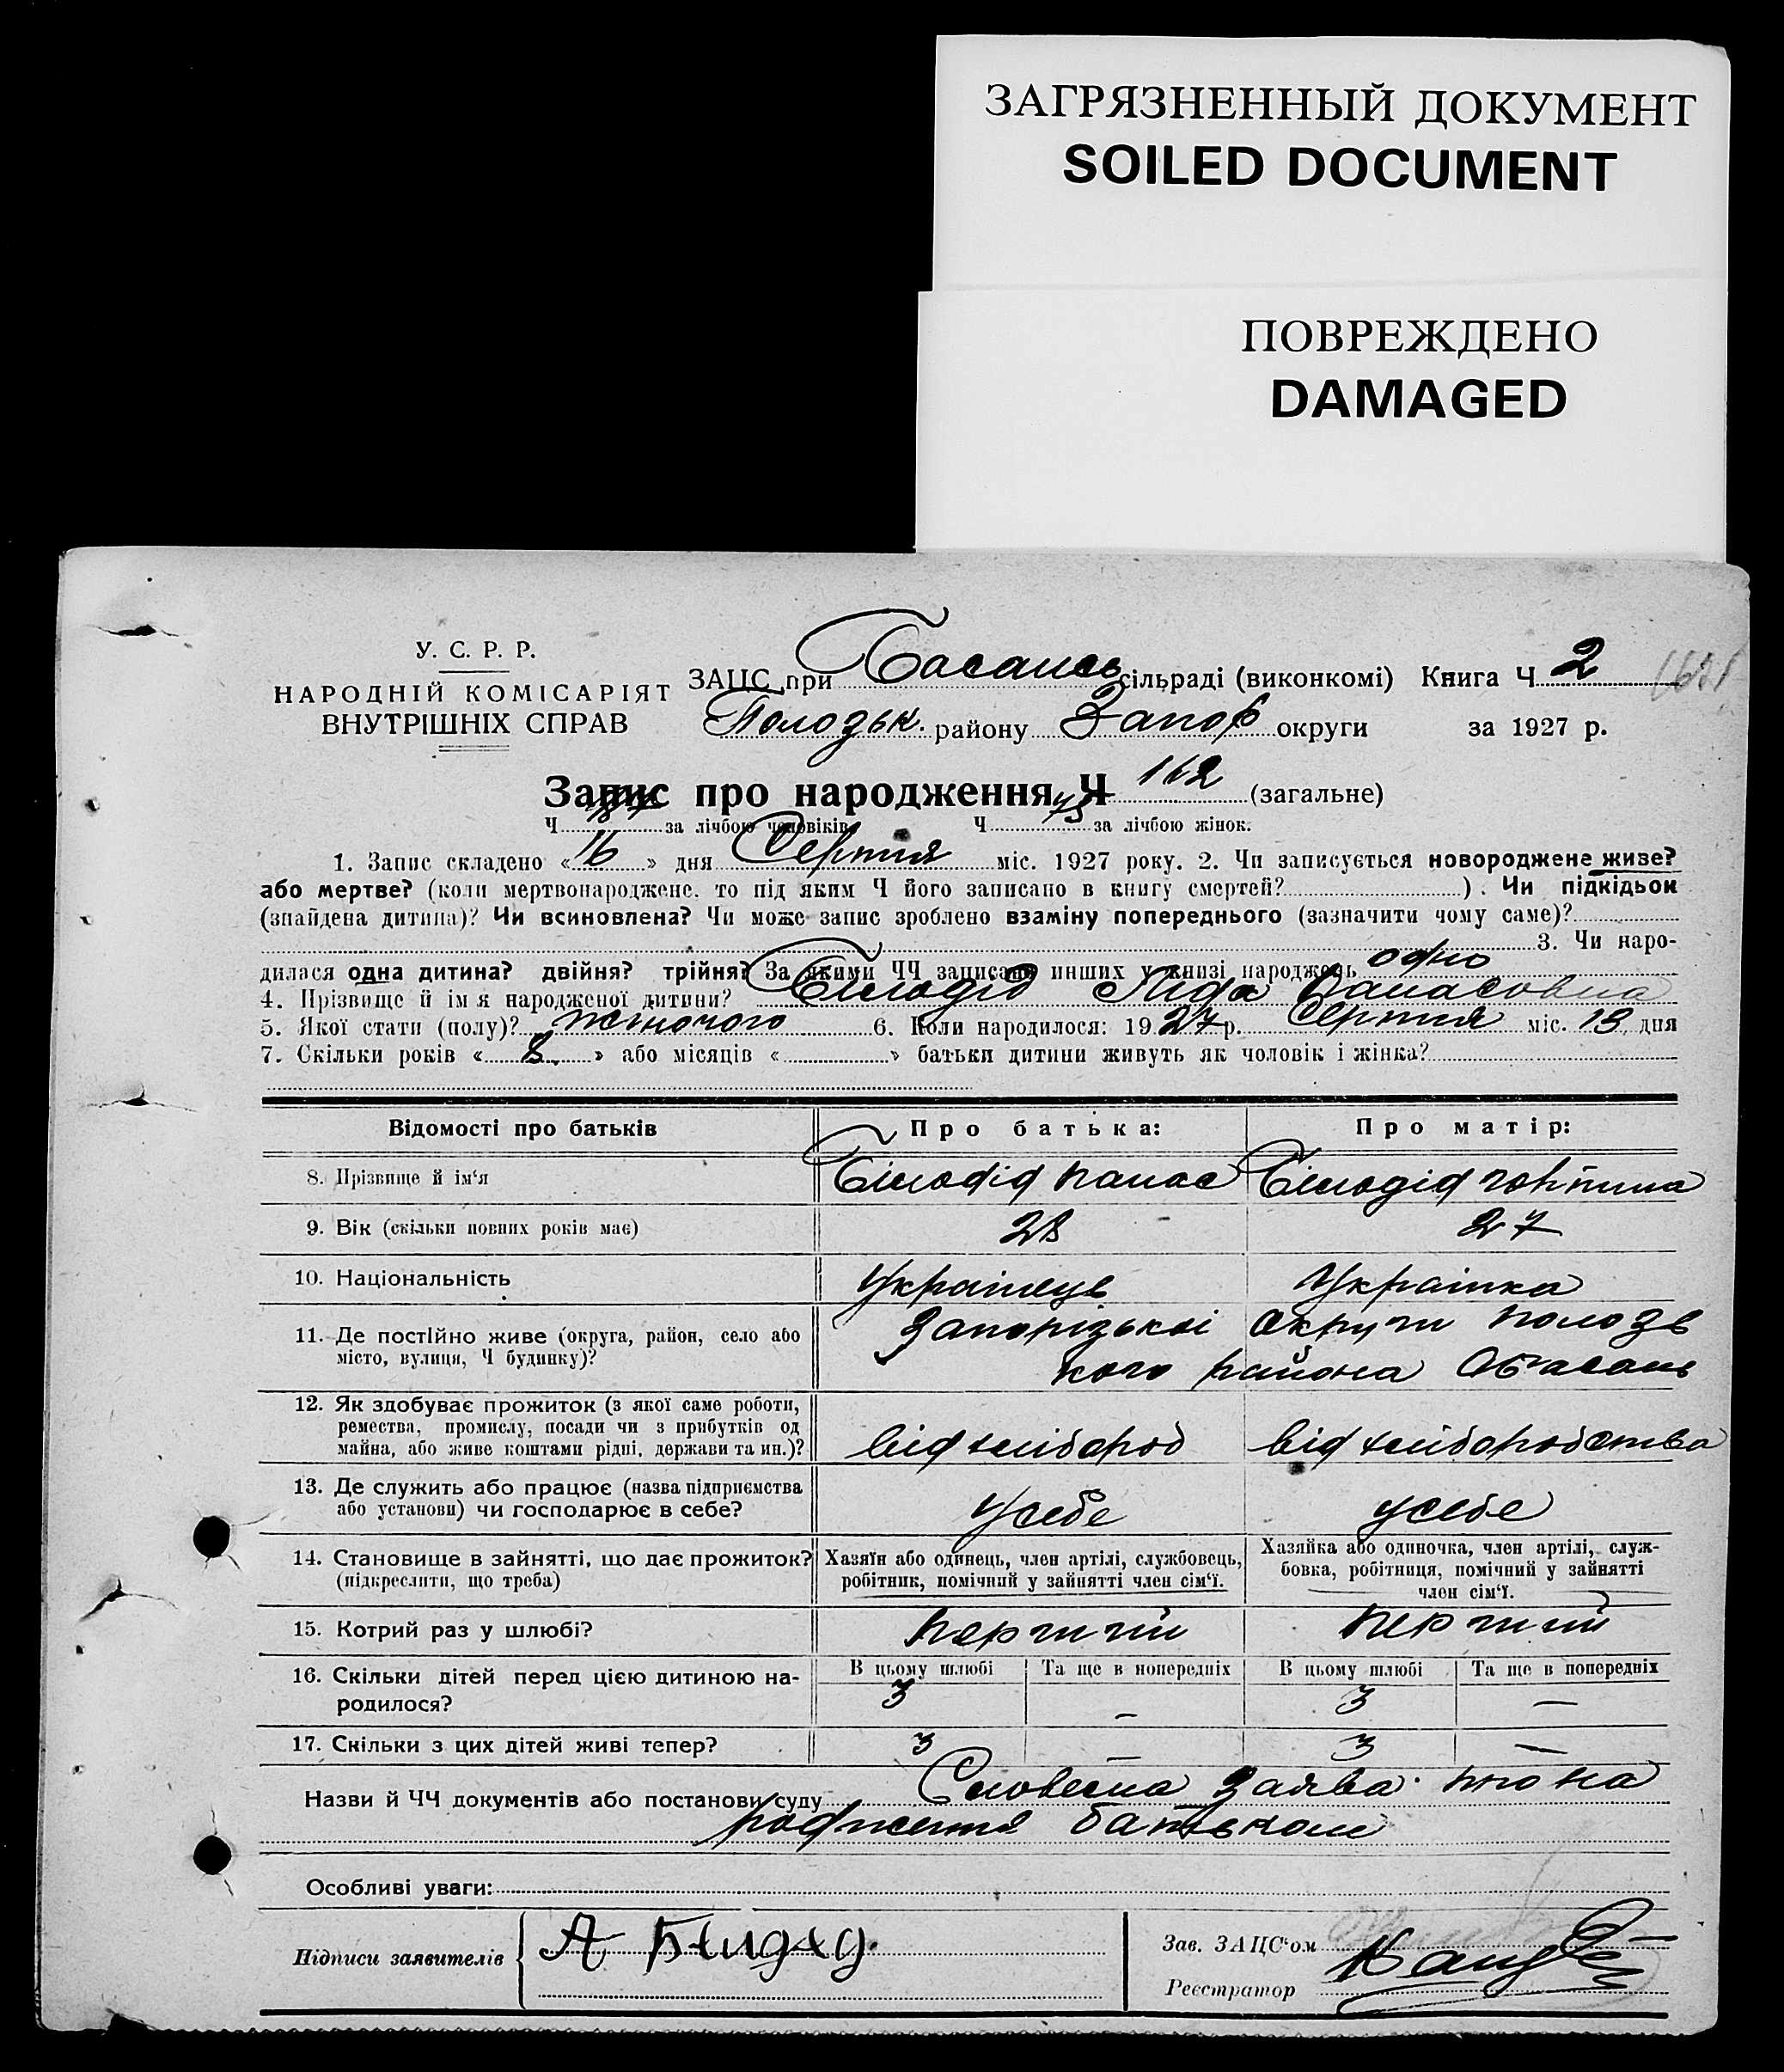 ЗАГРЯЗНЕННЫЙ ДОКУМЕНТ
SOILED DOCUMENT
ПОВРЕЖДЕНО
DAMAGED
У. С. Р. Р.
НАРОДНІЙ КОМІСАРІЯТ
ВНУТРІШНІХ СПРАВ
ЗАЦС при Басансь сільраді (виконкомі) Книга Ч 2
Пологськ. району Запор округи за 1927 р.
Запис про народження Ч 162 (загальне)
Ч 87 за лічбою чоловіків Ч 75 за лічбою жінок.
1. Запис складено «16» дня Серпня міс. 1927 року. 2. Чи записується новороджене живе?
або мертве? (коли мертвонароджене, то під яким Ч його записано в книгу смертей? ). Чи підкідьок
(знайдена дитина)? Чи всиновлена? Чи може запис зроблено взаміну попереднього (зазначити чому саме)?
3. Чи наро-
дилася одна дитина? двійня? трійня? За якими ЧЧ записано инших у книзі народжень одно
4. Прізвище й імя народженої дитини? Білодід Ліда Панасовна
5. Якої стати (полу)? жіночого 6. Коли народилося: 1927 р. Серпня міс. 13 дня
7. Скільки років «8» або місяців « » батьки дитини живуть як чоловік і жінка?
Відомості про батьків Про батька: Про матір:
8. Прізвище й ім'я Білодід Панас Білодід Горпина
9. Вік (скільки повних років має) 28 27
10. Національність Українець Українка
11. Де постійно живе (округа, район, село або Запорізької Округи Полозь
місто, вулиця, Ч будинку)? кого района Обасань
12. Як здобуває прожиток (з якої саме роботи,
ремества, промислу, посади чи з прибутків од
майна, або живе коштами рідні, держави та ин.)? від хлібороб від хліборобства
13. Де служить або працює (назва підприємства
або установи) чи господарює в себе? усебе усебе
14. Становище в зайнятті, що дає прожиток? Хазяїн або одинець, член артілі, службовець, Хазяйка або одиночка, член артілі, служ-
(підкреслити, що треба) робітник, помічний у зайнятті член сім'ї. бовка, робітниця, помічний у зайнятті
член сім'ї.
15. Котрий раз у шлюбі? перший перший
16. Скільки дітей перед цією дитиною на- В цьому шлюбі Та ще в попередніх В цьому шлюбі Та ще в попередніх
родилося? 3 – 3 –
17. Скільки з цих дітей живі тепер? 3 – 3 –
Назви й ЧЧ документів або постанови суду Словесна заява про на
родження батьком
Особливі уваги:
Підписи заявителів А
Зав. ЗАЦС'ом
Реєстратор